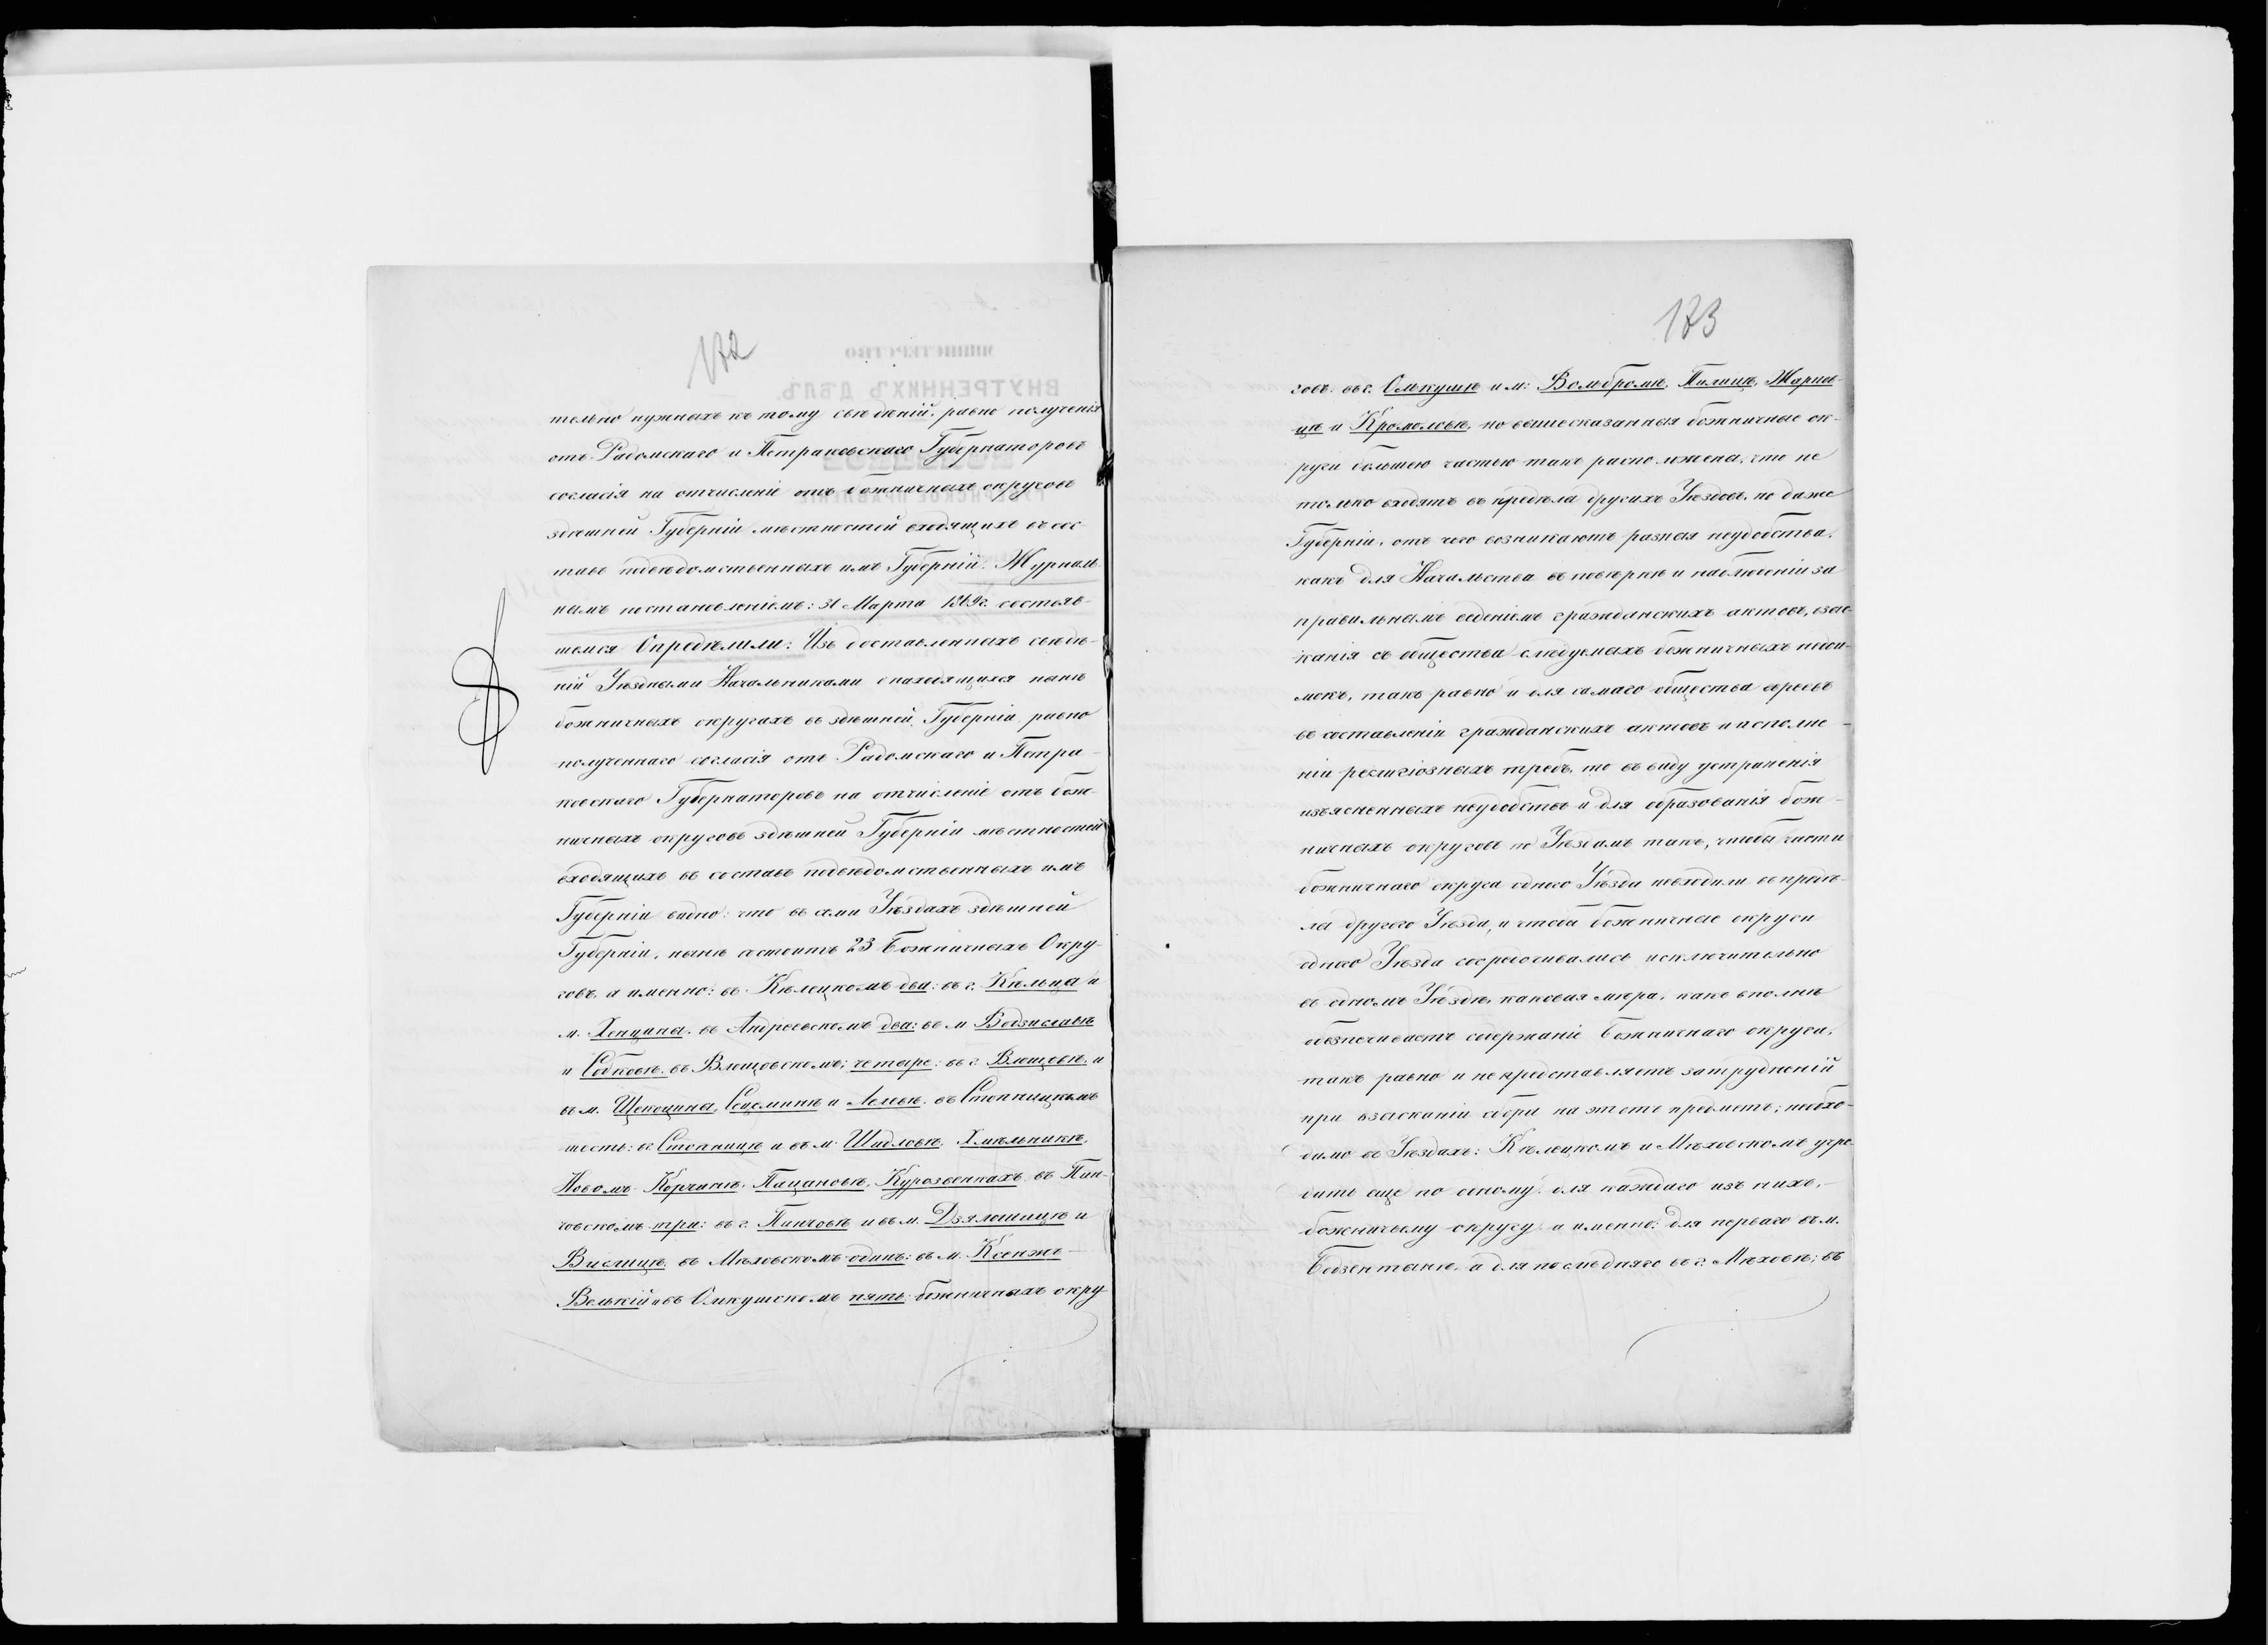 172
тельно нужныхъ къ тому свѣдѣній, равно полученія
отъ Радомскаго и Петраковскаго Губернаторовъ
согласія на отчисленіе отъ божничныхъ округовъ
здѣшней Губерніи мѣстностей входящихъ въ сос-
тавъ подвѣдомственныхъ имъ Губерній. Журналь-
нымъ постановленіемъ: 31 Марта 1869 г. состояв-
шемся Опредѣлили: Изъ доставленныхъ свѣдѣ-
ній Уѣздными Начальниками о находящихся нынѣ
божничныхъ округахъ въ здѣшней Губерніи, равно
полученнаго согласія отъ Радомскаго и Петра-
ковскаго Губернаторовъ на отчисленіе отъ бож-
ничныхъ округовъ здѣшней Губерніи мѣстностей
входящихъ въ составъ подвѣдомственныхъ имъ
Губерній видно: что въ семи Уѣздахъ здѣшней
Губерніи, нынѣ состоитъ 23 Божничныхъ Окру-
говъ, а именно: въ Кѣлецкомъ два: въ г. Кѣльца и
м. Хенцина, въ Андреевскомъ два: въ м. Водзиславѣ
и Собковѣ, въ Влощовскомъ: четыре: въ г. Влощовѣ, и
въ м. Щекоцина, Сецеминѣ и Леловѣ, въ Стопницкомъ
шесть: въ Стопницѣ и въ м. Шидловѣ, Хмѣльникѣ,
Новомъ Корчинѣ, Пацановѣ, Курозвенкахъ, въ Пин-
човскомъ три: въ г. Пинчовѣ и въ м. Дзялошицѣ и
Вислицѣ, въ Мѣховскомъ одинъ: въ м. Ксенжъ-
Велькій и въ Олкушскомъ пять: божничныхъ окру
173
говъ: въ г. Олькушѣ и м: Вольбромѣ, Пилицѣ, Жарнов-
цѣ и Кромоловѣ, но вышесказанныя божничные ок-
руги большею частью такъ расположена, что не
только входятъ въ предѣла другихъ Уѣздовъ, но даже
Губерніи, отъ чего возникаютъ разныя неудобства,
какъ для Начальства въ повѣркѣ и наблюденіи за
правильнымъ веденіемъ гражданскихъ актовъ, взыс-
канія съ общества слѣдуемыхъ божничныхъ недои-
мокъ, такъ равно и для самаго общества евреевъ
въ составленіи гражданскихъ актовъ и исполне-
ніи религіозныхъ требъ, то въ виду устраненія
изъясненныхъ неудобствъ и для образованія бож-
ничныхъ округовъ по Уѣздамъ такъ, чтобы части
божничнаго округа одного Уѣзда невходили въ предѣ-
ла другого Уѣзда, и чтоба божничные округи
одного Уѣзда сосредочивались исключительно
въ одномъ Уѣздѣ, каковая мѣра, какъ вполнѣ
обезпечиваетъ содержаніе Божничнаго округа,
такъ равно и не представляетъ затрудненій
при взысканіи сбора на этотъ предметъ; необхо-
димо въ Уѣздахъ: Кѣлецкомъ и Мѣховскомъ учре-
дить еще по одному для каждаго изъ нихъ,-
божничьему округу, а именно: для перваго въ м.
Бодзентынѣ, а для послѣдняго въ г. Мѣховѣ; въ